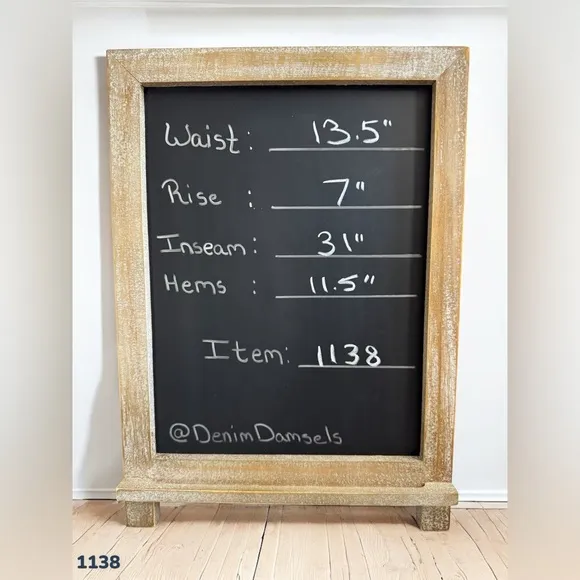 Waist: 13.5"
Rise : 7"
Inseam: 31"
Hems : 11.5"
Item: 1138
@DenimDamsels
1138